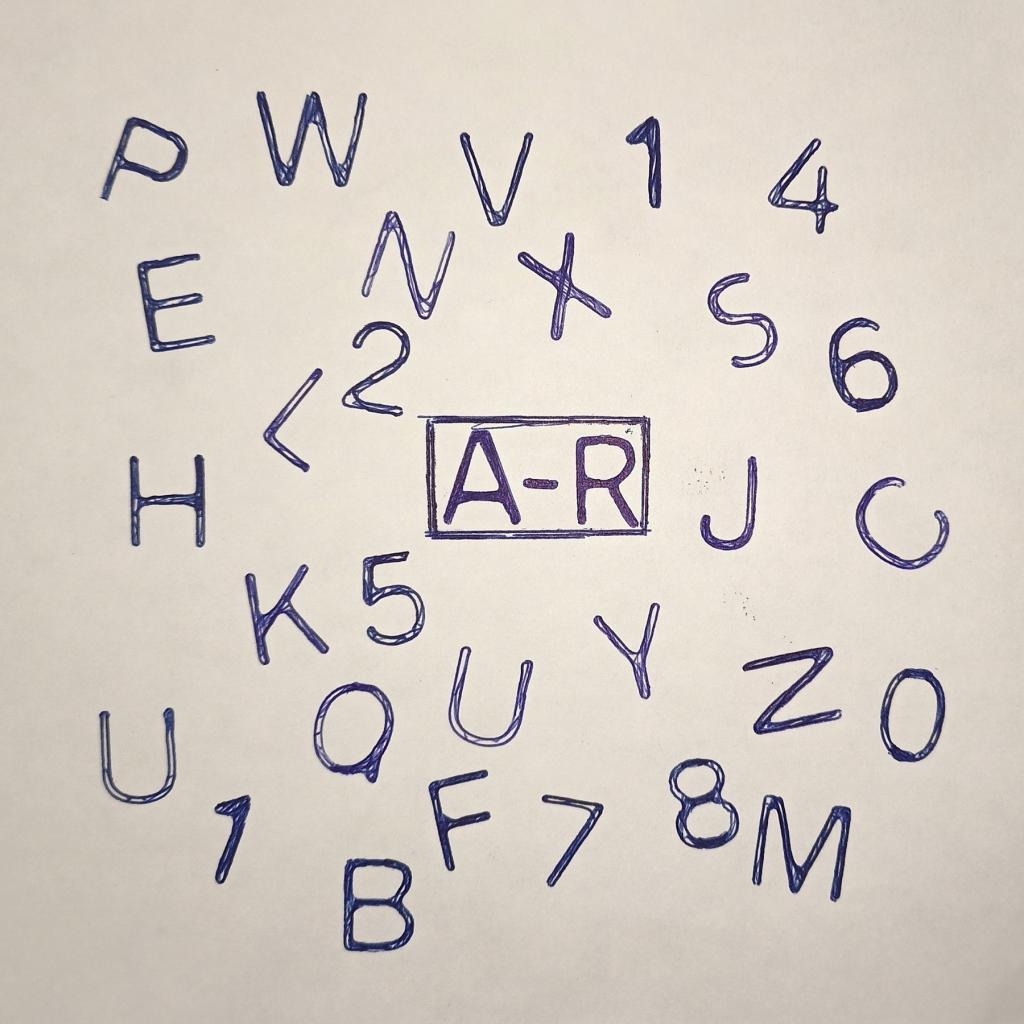 P W V 1 4
E N X S 6
< 2
H A-R J C
K 5 Y
U Q U Z 0
1 F 7 8 M
B